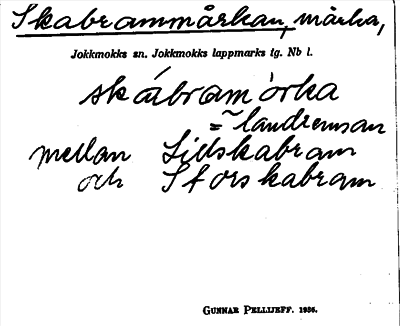 Skabrammårkan, mårka,
Jokkmokks sn. Jokkmokks lappmarks tg. Nb l.
skábramòrka
= ~ landremsan
mellan Lillskabram
och Storskabram
GUNNAR PELLIJEFF. 1936.